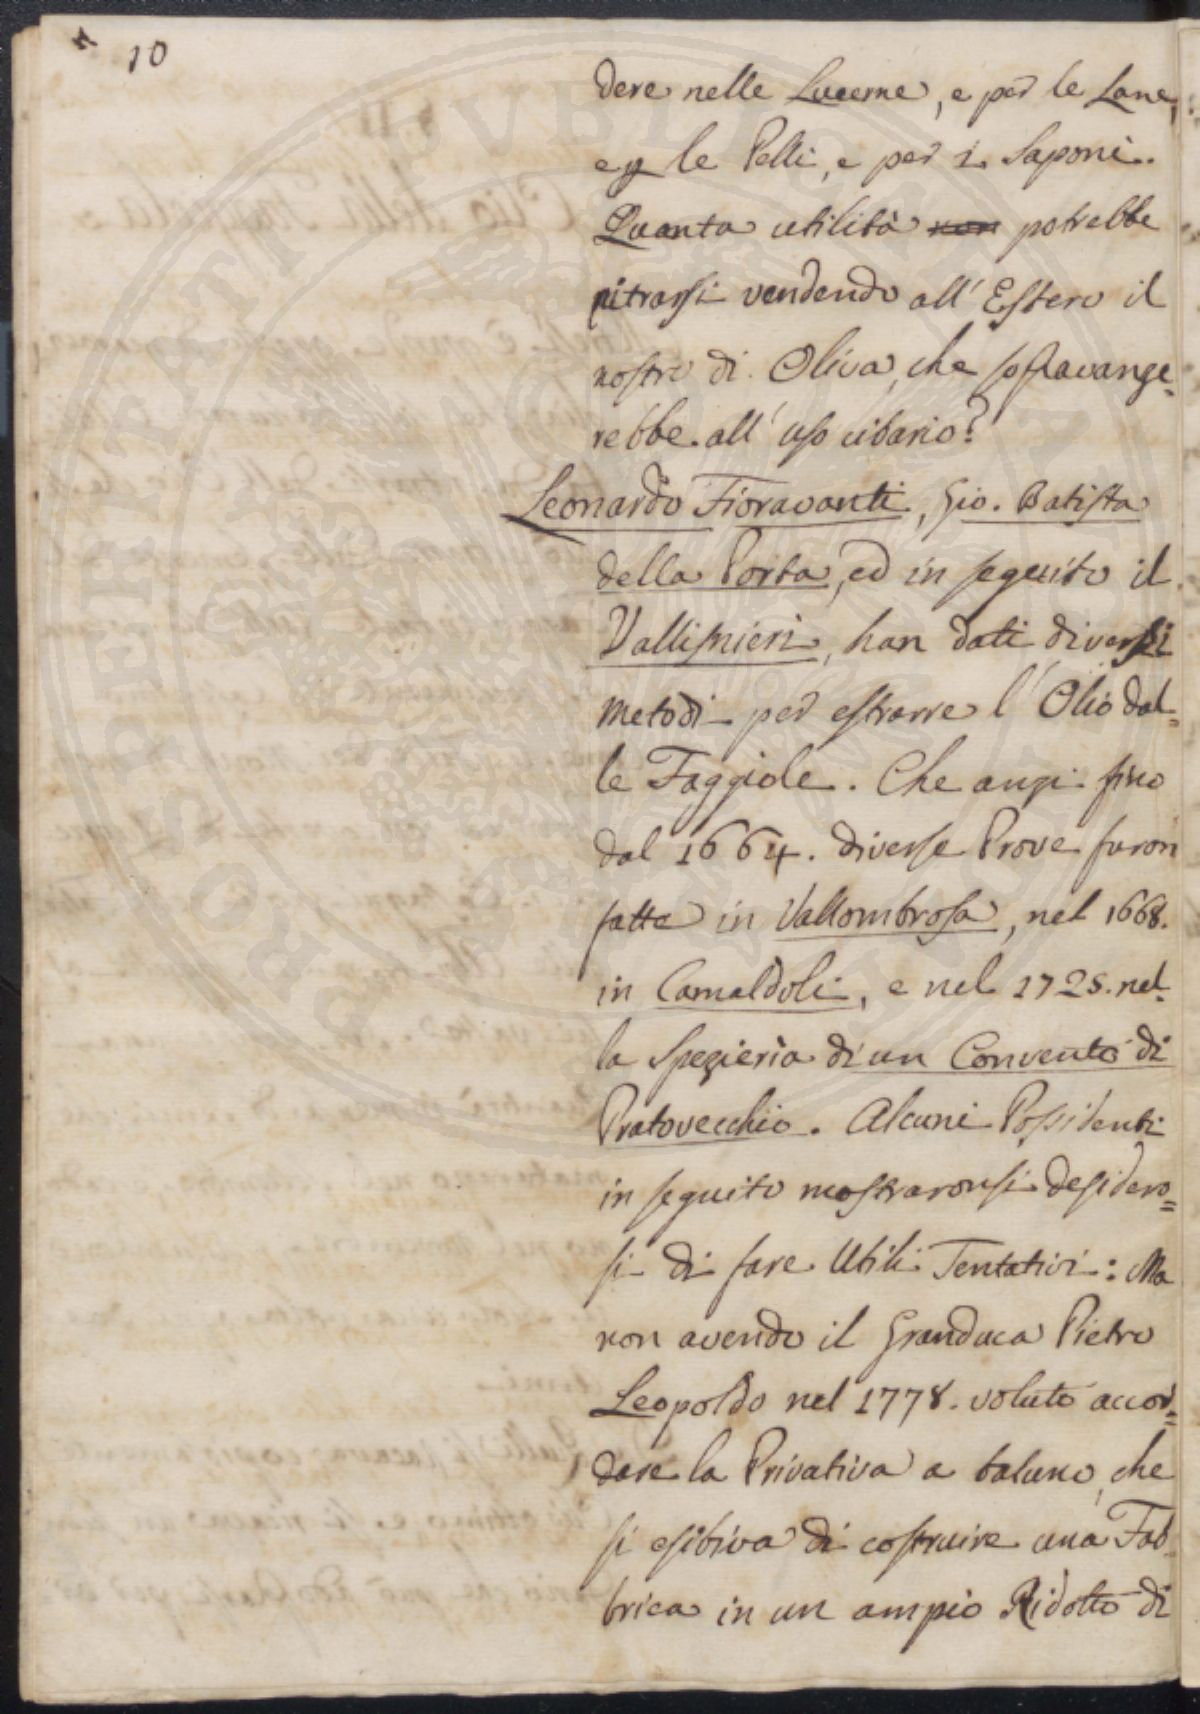 10
dere nelle Lucerne, e per le Lane,
e p le Pelli, e per i Saponi.
Quanta utilità non potrebbe
ritrarsi vendendo all' Estero il
nostro di Oliva, che sopravanze=
rebbe all' uso cibario?
Leonardo Fioravanti, Gio. Batista
della Porta, ed in seguito il
Vallisnieri, han dati diversi
metodi per estrarre l' Olio dal=
le Faggiole. Che anzi fino
dal 1664. diverse Prove furon
fatte in Vallombrosa, nel 1668.
in Camaldoli, e nel 1725. nel=
la Spezieria di un Convento di
Pratovecchio. Alcuni Possidenti
in seguito mostraronsi desidero=
si di fare Utili Tentativi: Ma
non avendo il Granduca Pietro
Leopoldo nel 1778. voluto accor=
dare la Privativa a taluno, che
si esibiva di costruire una Fab=
brica in un ampio Ridotto di
PROSPERITATI PUBLICAE